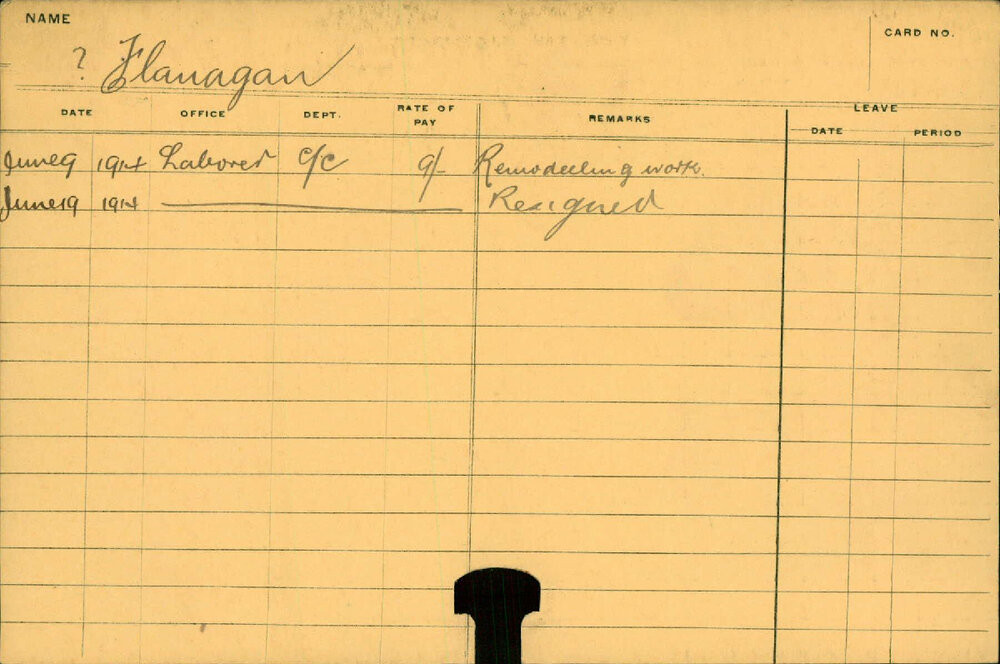 NAME
CARD NO.
? Flanagan
DATE OFFICE DEPT. RATE OF PAY REMARKS LEAVE
DATE PERIOD
June 9 1914 Laborer C/C 9/- Remodelling work.
June 19 1914 Resigned